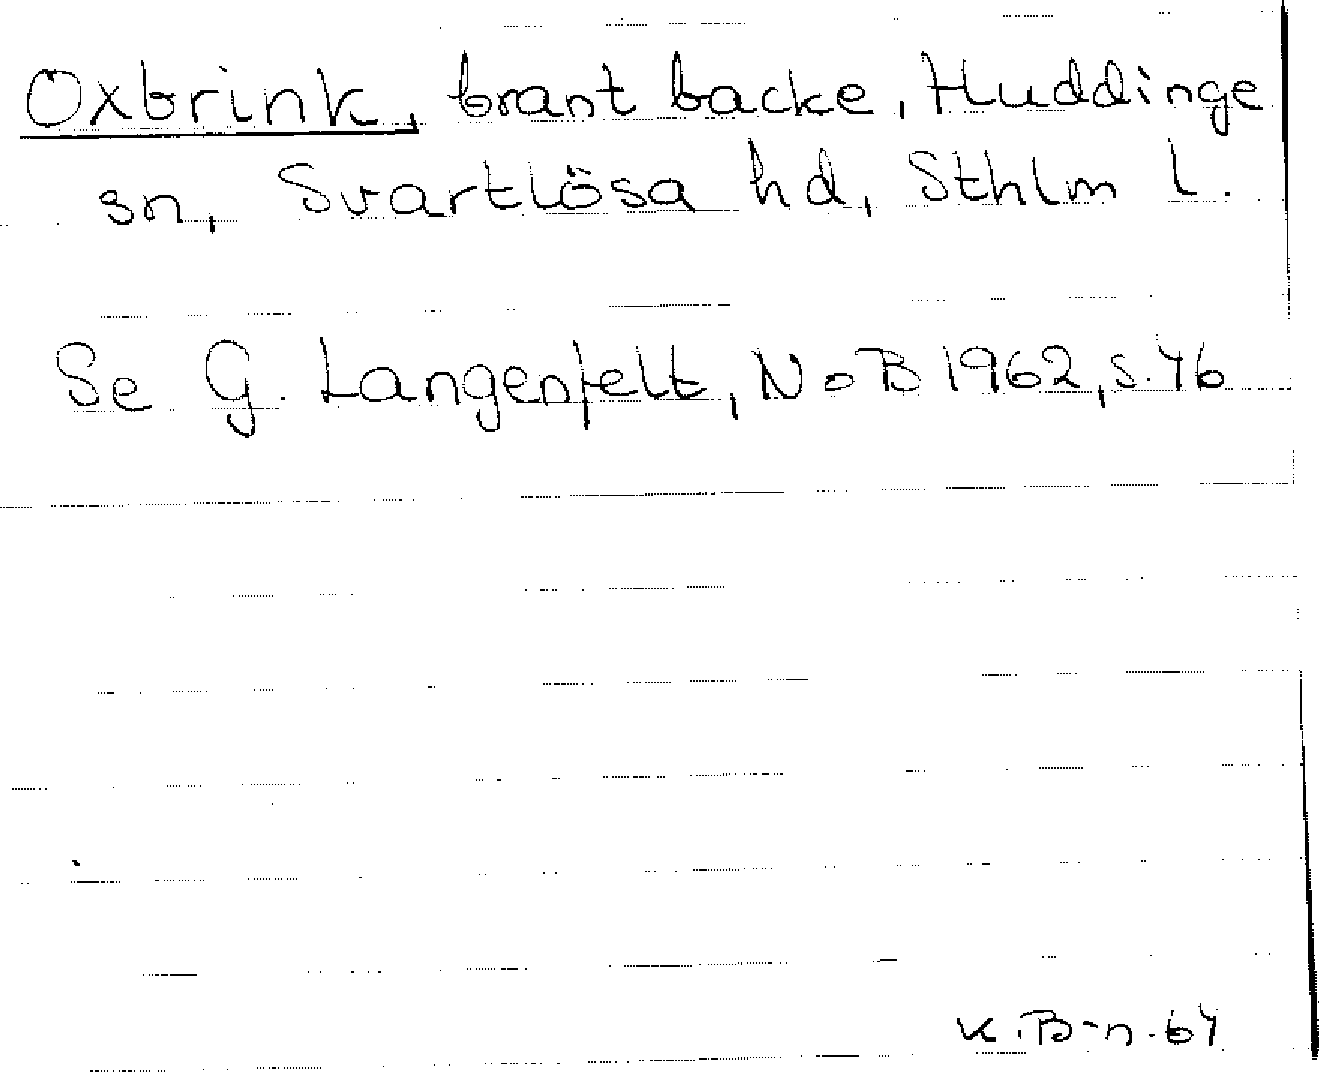 Oxbrink, brant backe, Huddinge
sn, Svartlösa hd, Sthlm l.
Se G. Langenfelt, NoB 1962, s. 46
K. B-n. 64